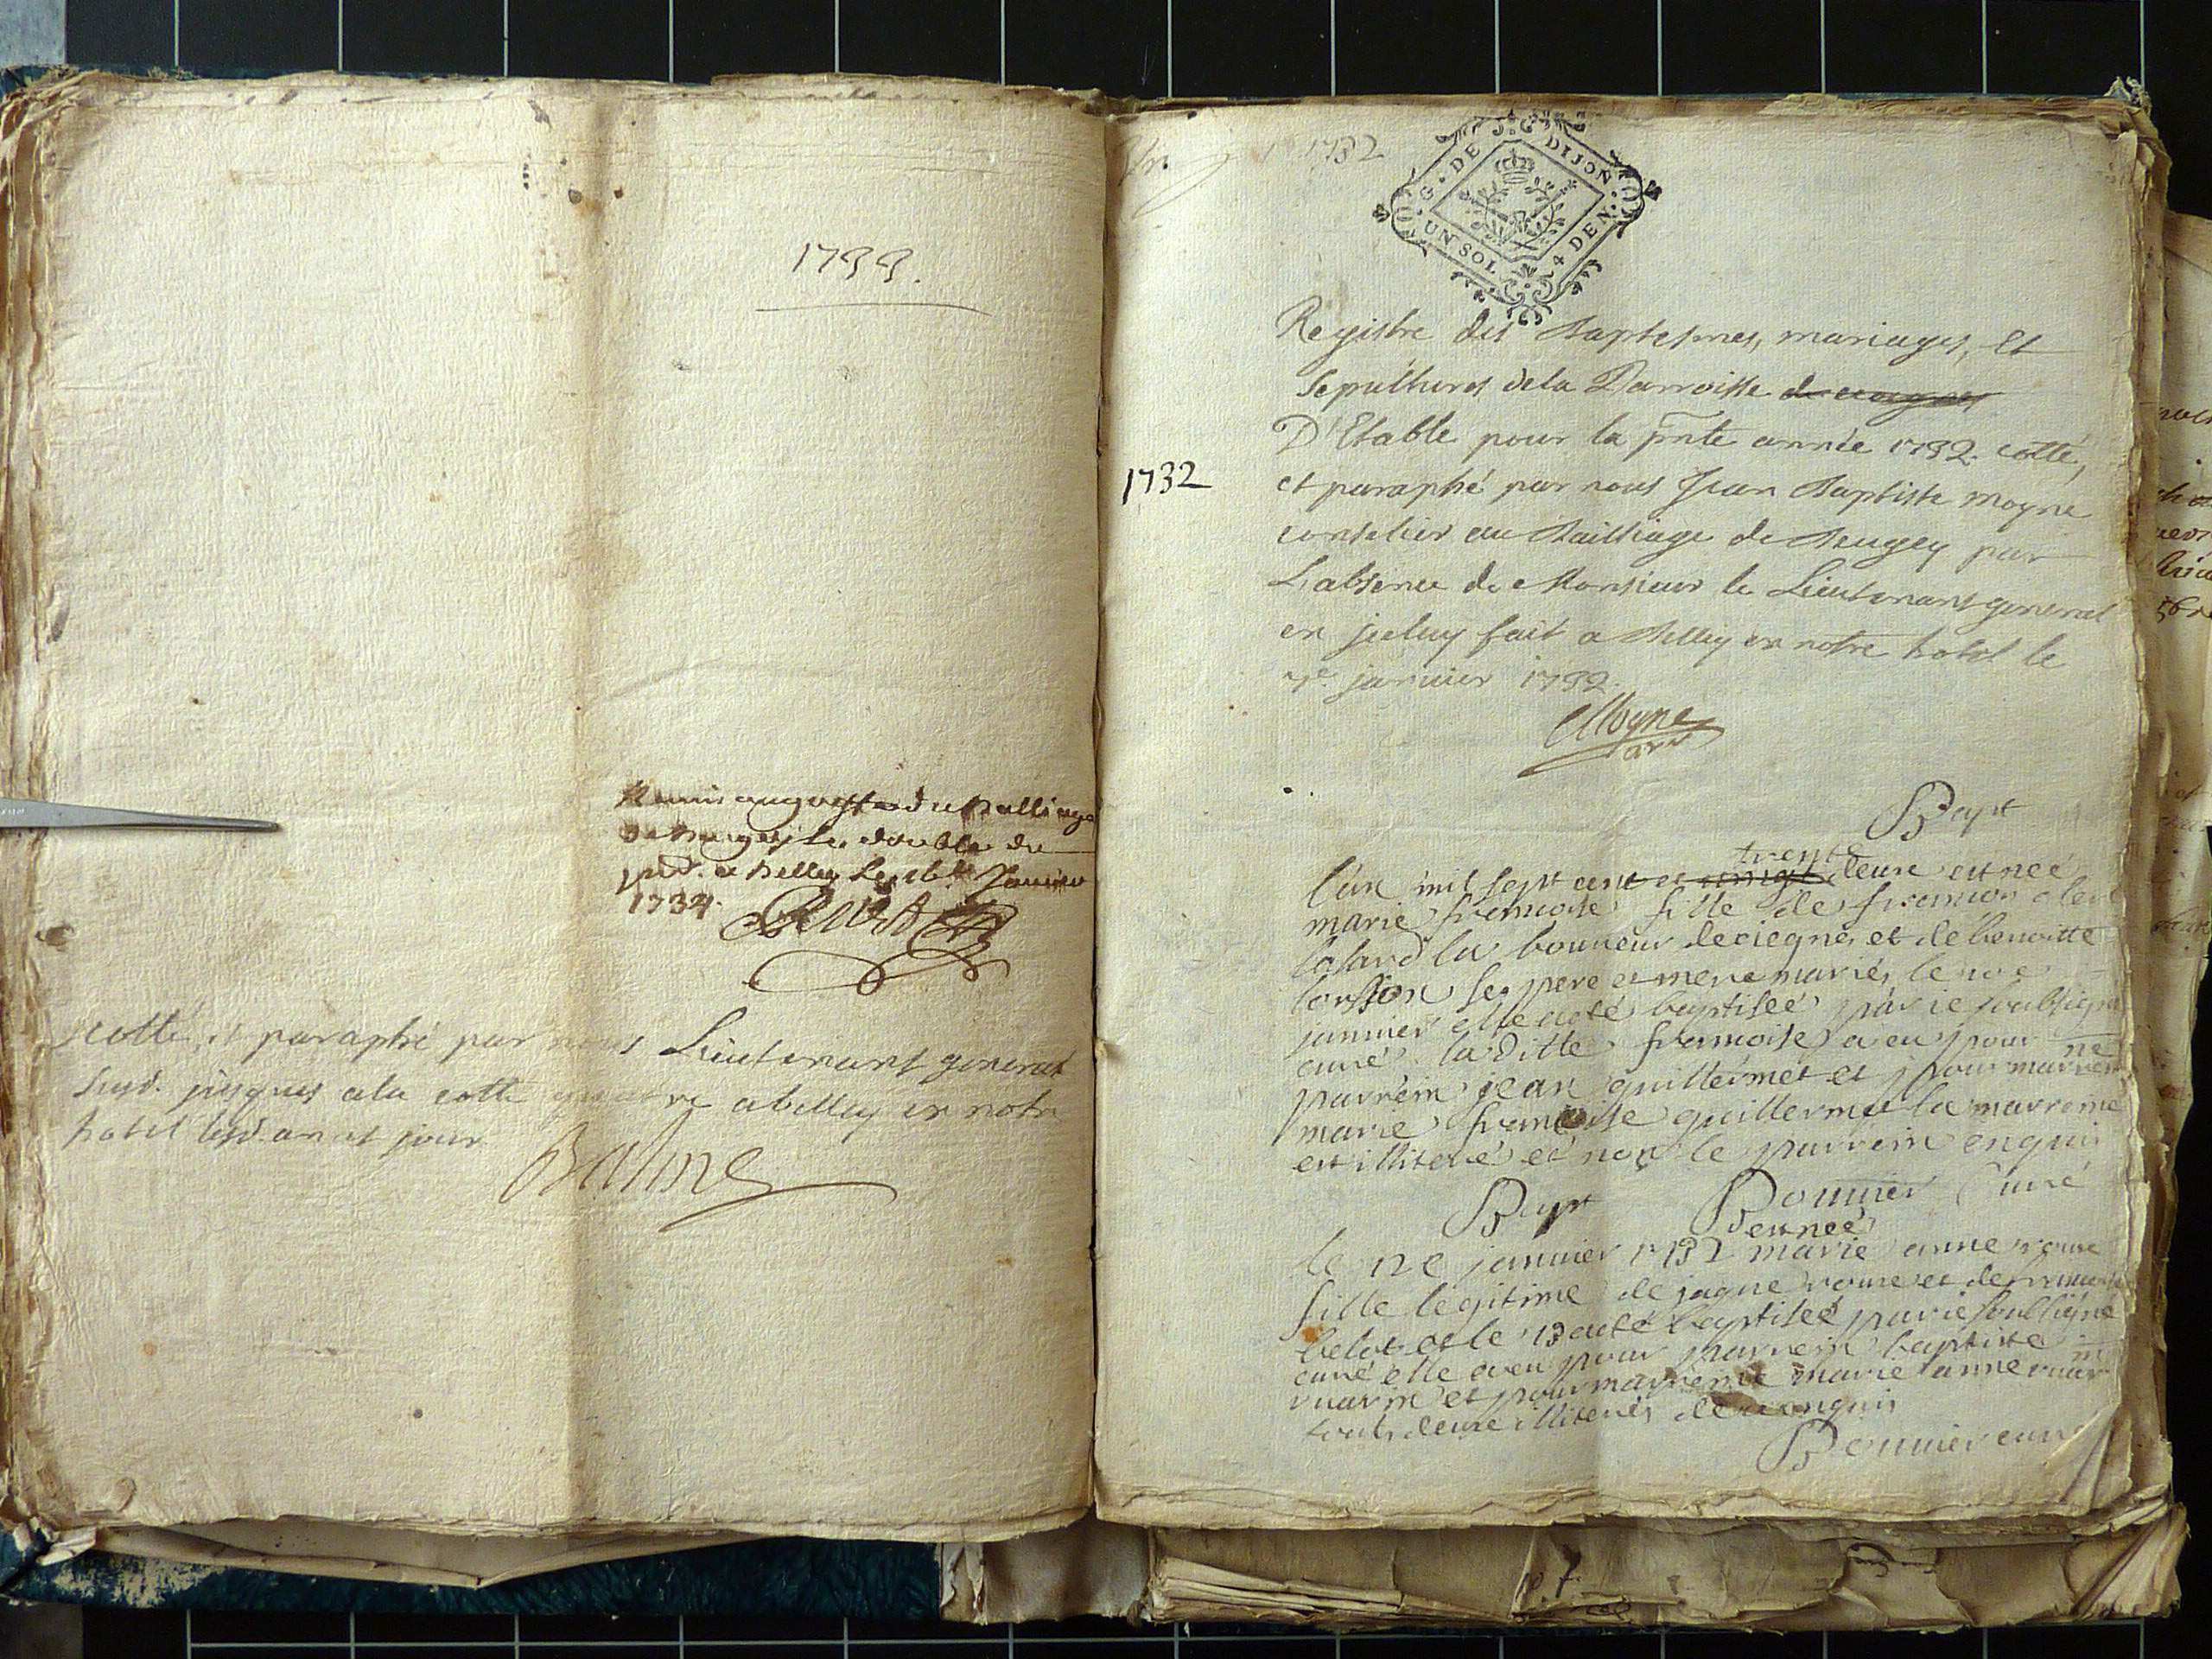 1733.
Remis au greffe du Balliage
De Bugey le double du
pnt. a Belley Le Janvier
1734.
cotté, et paraphé par nous Lieutenant general
susd. jusques ala cotte quatre abelley en notre
hotel lesd. an et jour
Balme
1732
G. DE DIJON
UN SOL 4 DEN.
Registre des Baptesmes, mariages, et
sepultures dela Parroisse
D'Etable pour la pnte année 1732. cotté,
1732
et paraphé par nous Jean Baptiste moyne
conseiller au Bailliage de Beugey par
L'absence de Monsieur le Lieutenant general
en jceluy fait a Belley en notre hotel le
7e. janvier 1732.
Moyne
Bapt
trente
L'an mil sept cent et vingt deux est neé
marie francoise fille de francois
la boureur et de benoitte
ses pere et mere mariés le
janvier elle a eté baptiseé par ie soubsigné
curé la ditte francoise a eu pour
parrein jean guillermet et pour marrene
marie francoise guillermet la marreine
est illiteré et non le parrein enquis
Bapt Bonnier Curé
est neé
le 12e janvier 1732 marie anne
fille légitime de jaque et de
belot et le 13 a eté baptiseé par ie soubsigné
curé elle a eu pour parrein baptiste
ruarin et pour marrenie marie anne ruarin
touts deux illiterés de ce enquis
Bonnier curé